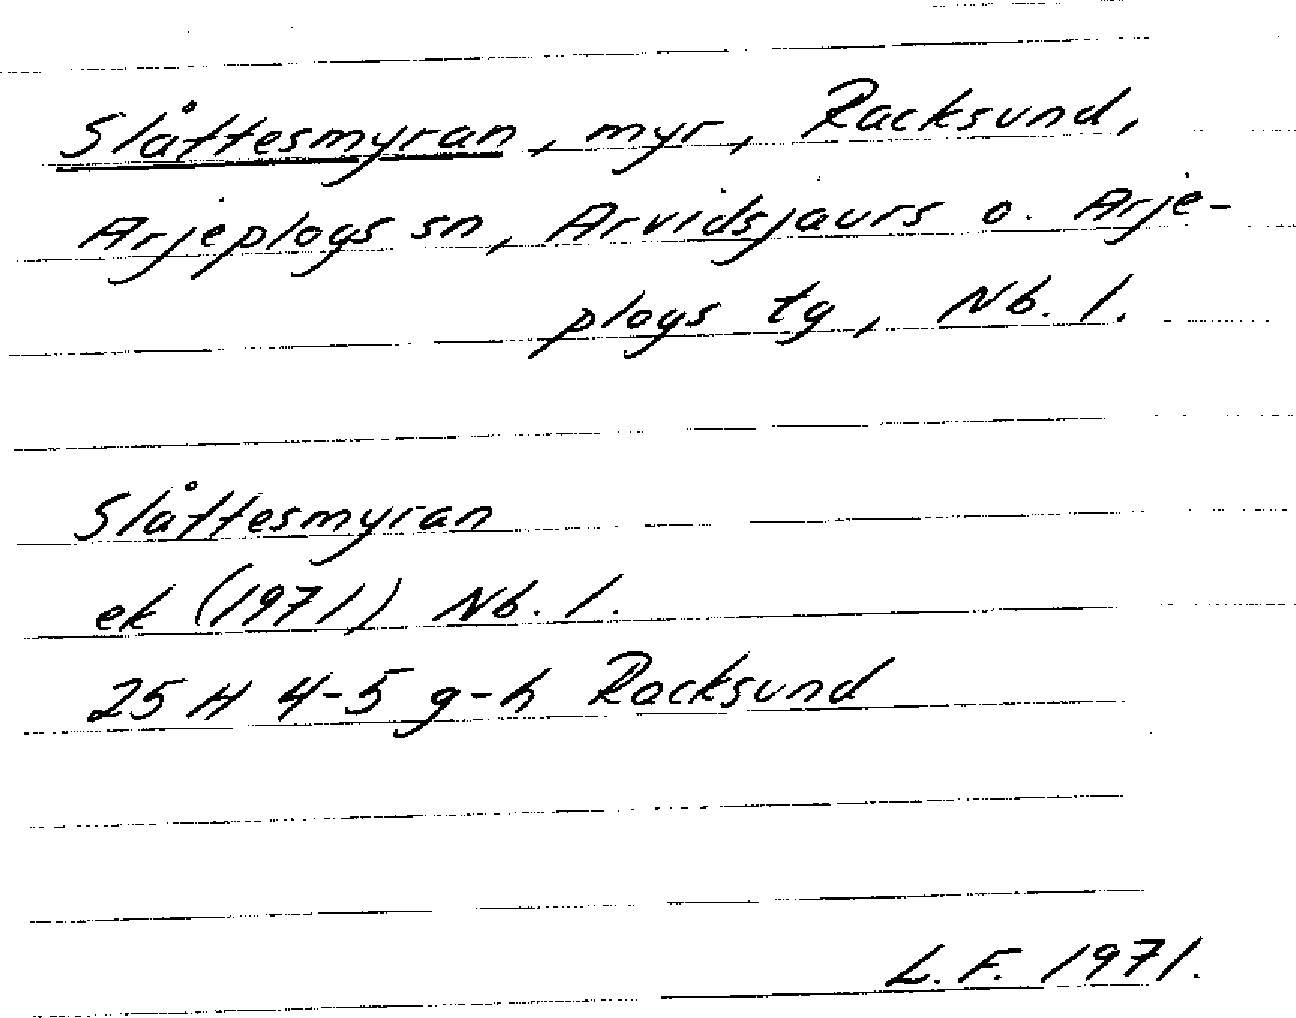 Slåttesmyran, myr, Racksund,
Arjeplogs sn, Arvidsjaurs o. Arje-
plogs tg, Nb. l.
Slåttesmyran
ek (1971) Nb. l.
25 H 4-5 g-h Racksund
L. F. 1971.